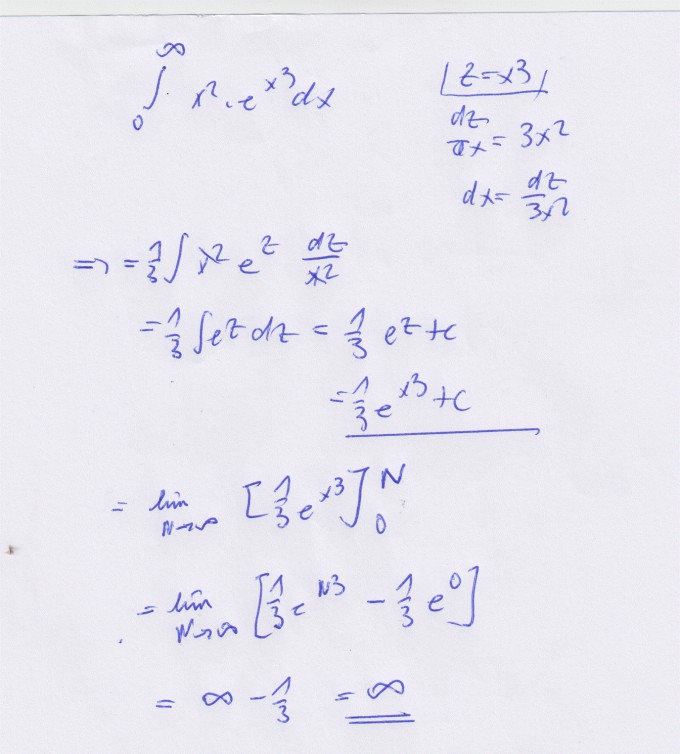 ∫₀^∞ x² · e^{x³} dx
| z = x³ |
dz/dx = 3x²
dx = dz/3x²
=> = 1/3 ∫ x² e^z dz/x²
= 1/3 ∫ e^z dz = 1/3 e^z + c
= 1/3 e^{x³} + c
= lim_{N→∞} [1/3 e^{x³}]₀^N
= lim_{N→∞} [1/3 e^{N³} - 1/3 e⁰]
= ∞ - 1/3 = ∞